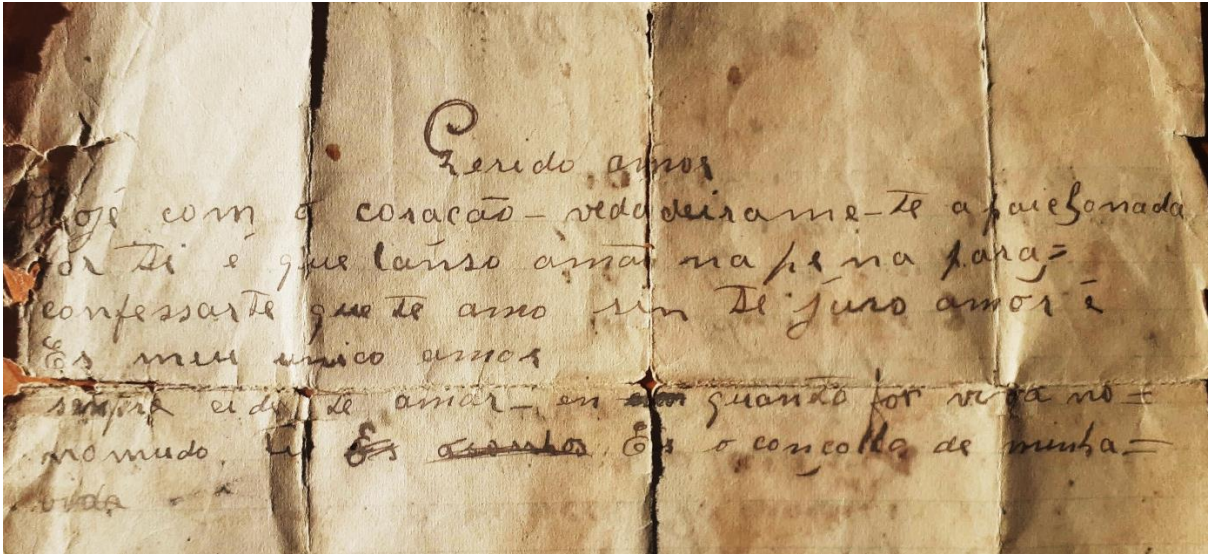 Qerido amor
Hoje com o coração - vedadeirame-te apaichonada
por Ti é que lanso amão na pena para=
confessarte que te amo sin Te juro amor é
És meu unico amor
sempre eide te amar - en quanto for viva no=
nomudo. tú És És o conçollo de minha=
vida